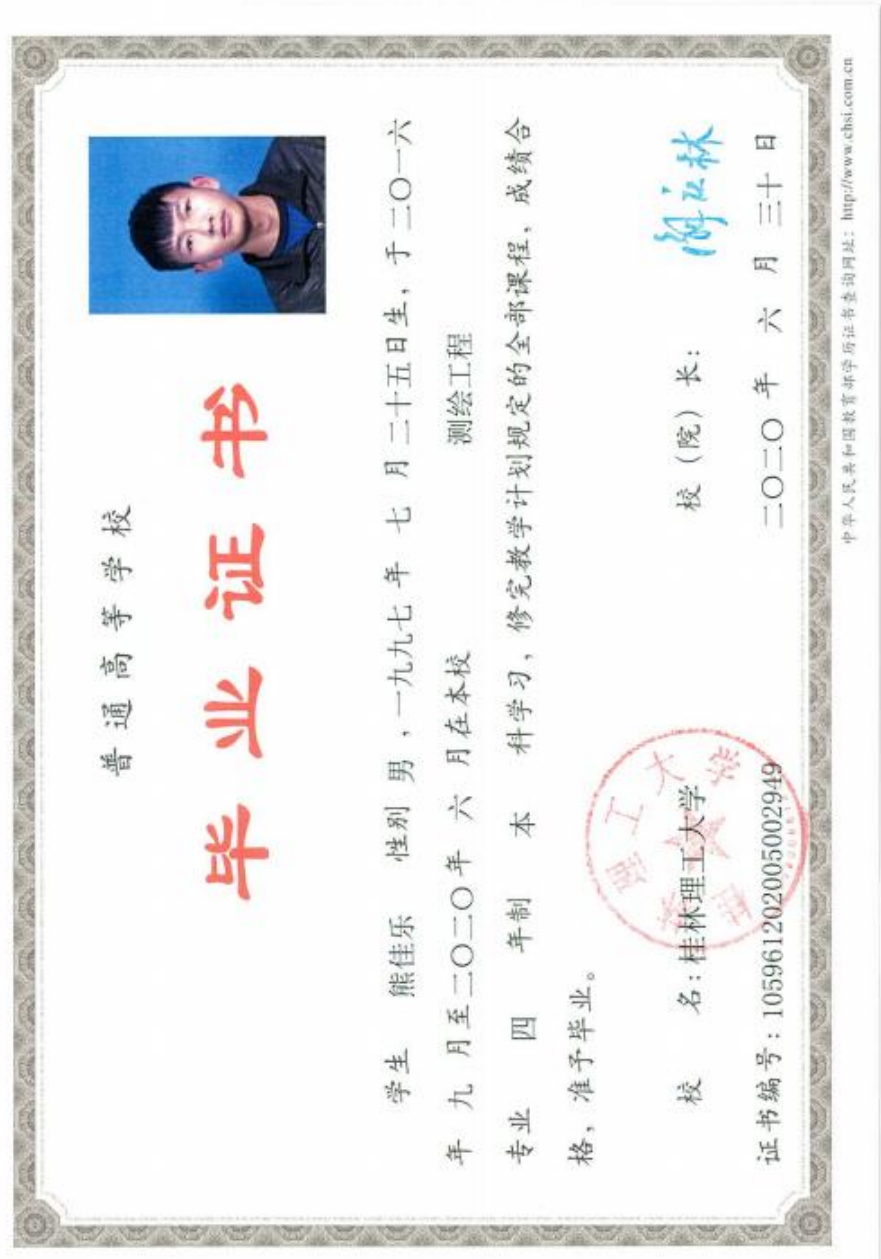 普通高等学校
毕业证书
学生 熊佳乐 性别 男 ，一九九七 年 七 月 二十五日生，于 二〇一六
年 九 月至 二〇二〇 年 六 月在本校 测绘工程
专业 四 年制 本 科学习，修完教学计划规定的全部课程，成绩合
格，准予毕业。
校 名：桂林理工大学 校（院）长：
证书编号：105961202005002949 二〇二〇 年 六 月 三十 日
桂林理工大学
中华人民共和国教育部学历证书查询网址：http://www.chsi.com.cn